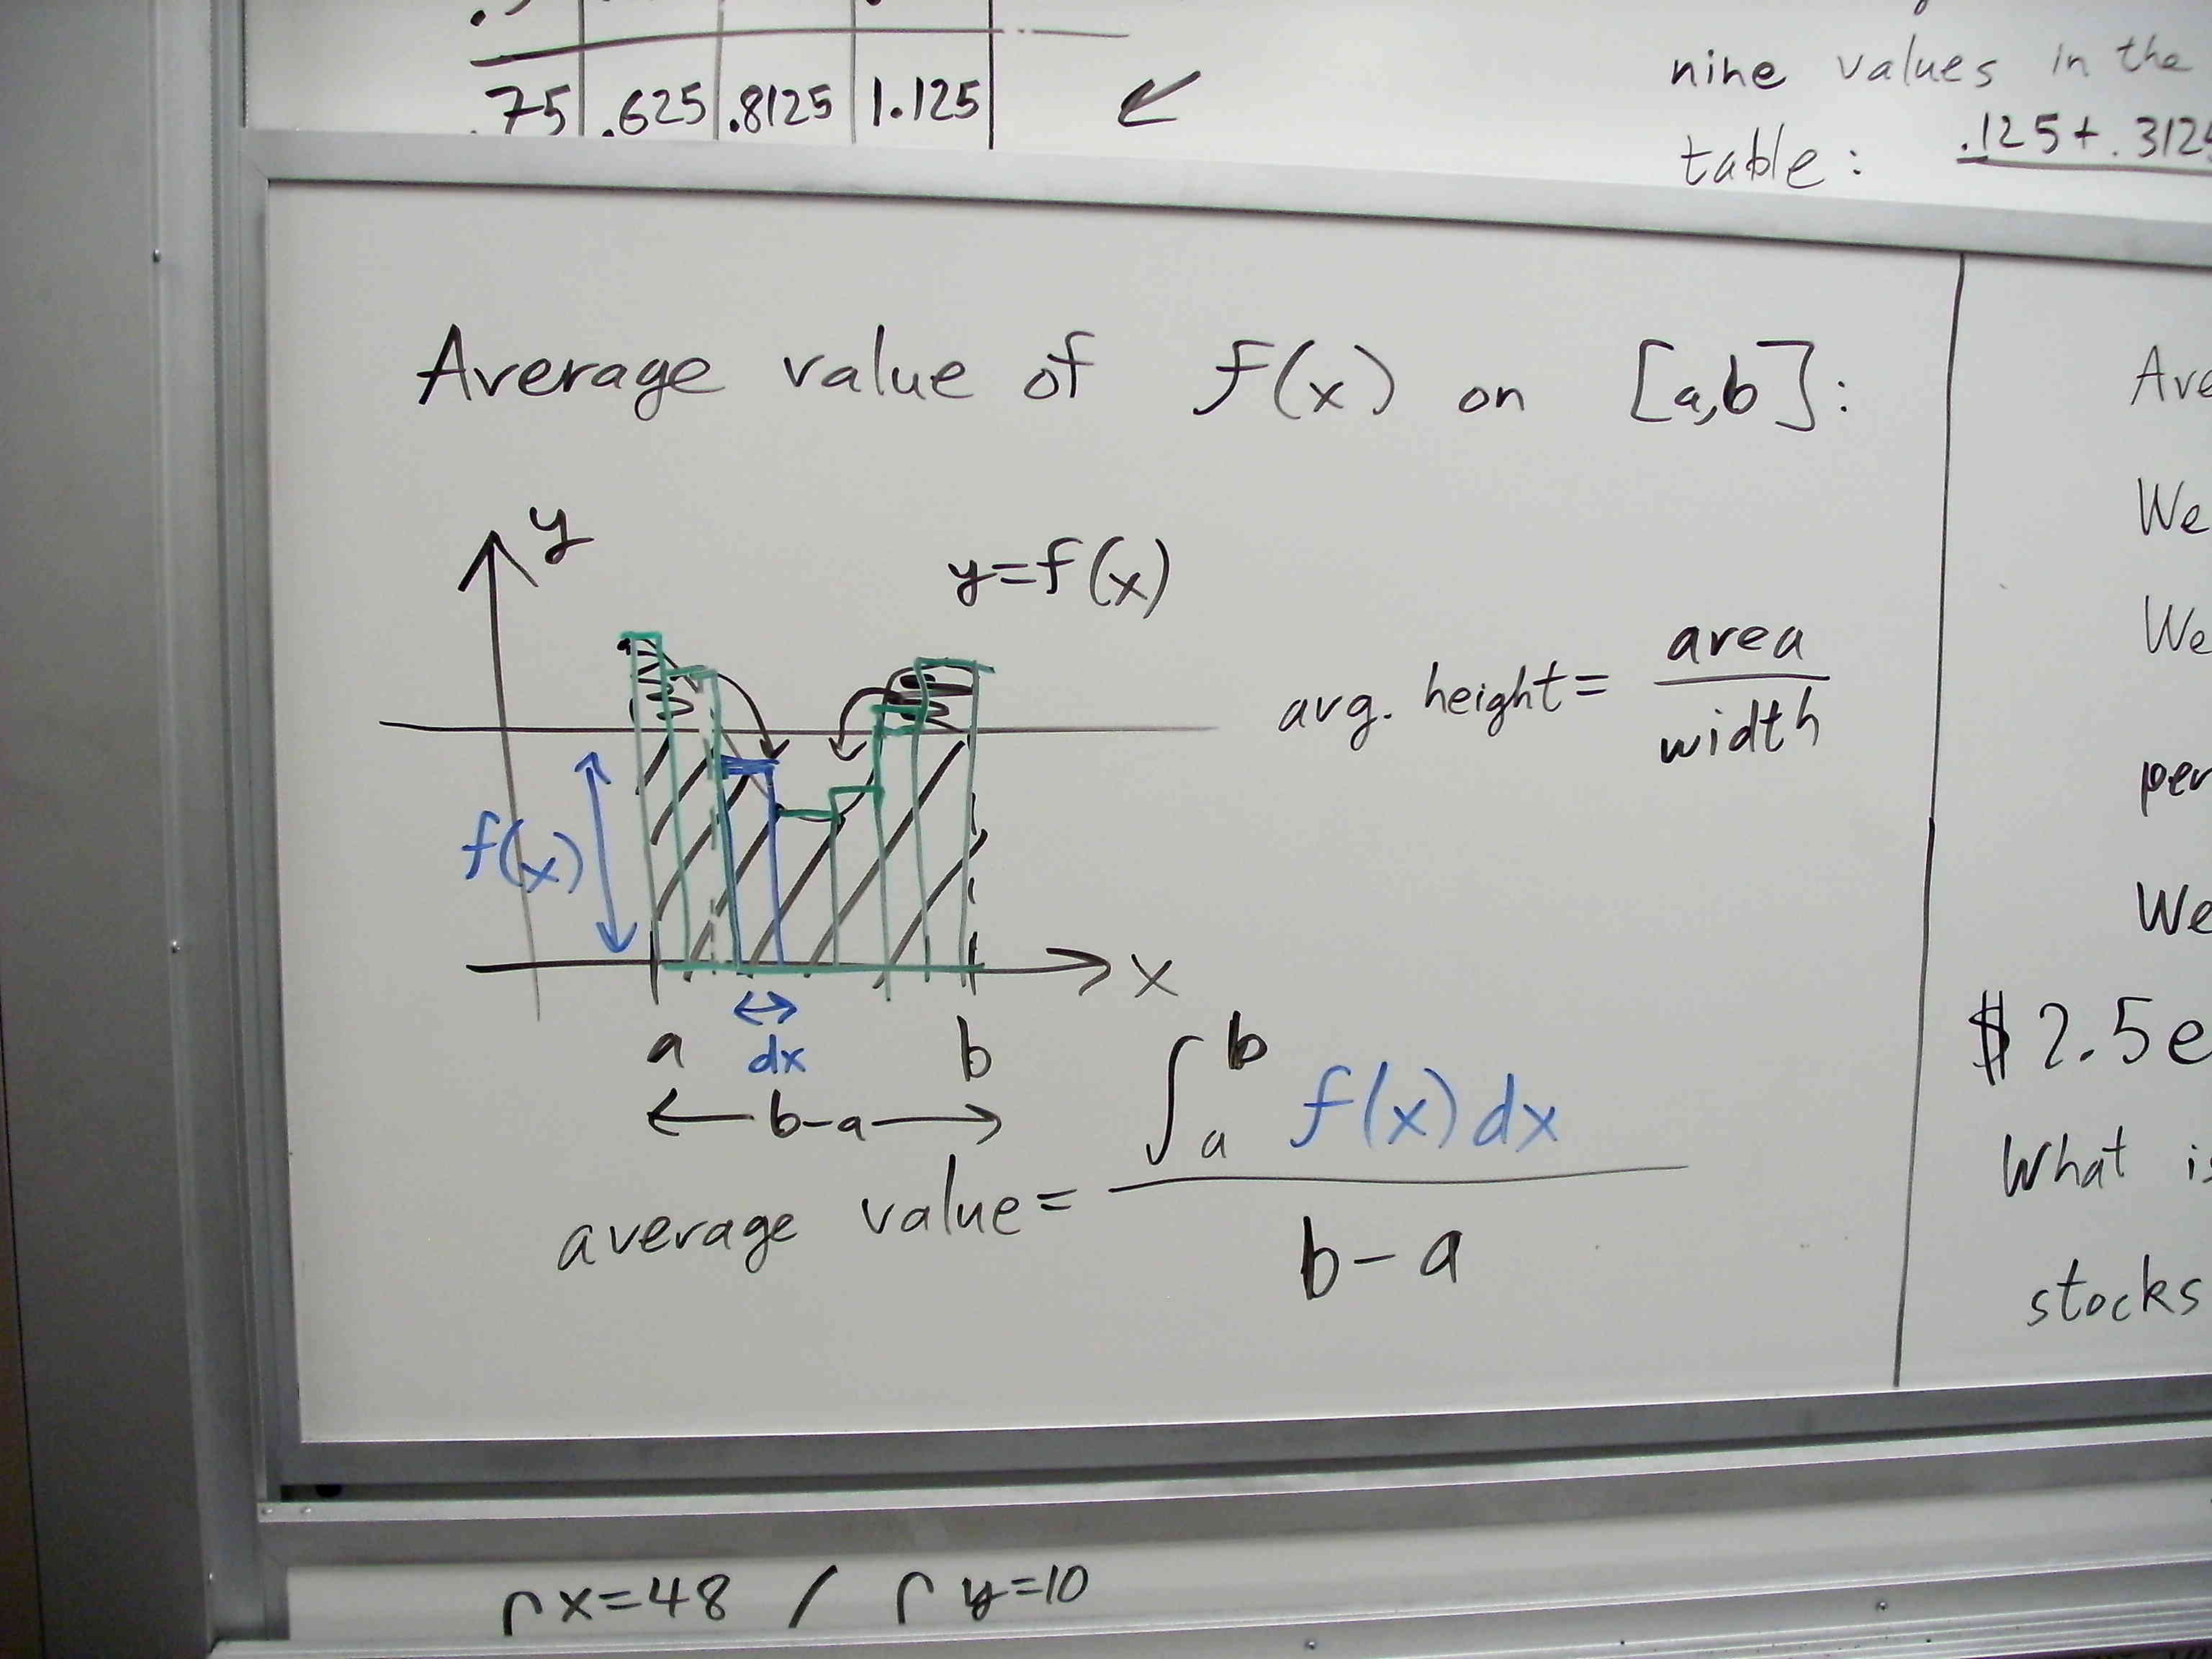 .75 .625 .8125 1.125
nine values in the
table: .125 + .312
Average value of f(x) on [a,b]:
y
y=f(x)
avg. height = area
width
f(x)
x
a dx b
b-a
average value = ∫ b a f(x) dx
b-a
We
We
per
We
$2.5e
What
stocks
x=48 y=10